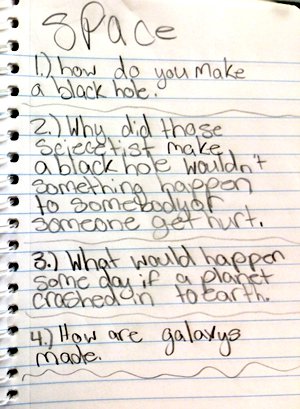 space
1.) how do you make
a black hole.
2.) Why did those
sciecetist make
a black hole wouldn't
something happen
to somebody or
someone get hurt.
3.) What would happen
some day if a planet
crashed in to earth.
4.) How are galaxys
made.